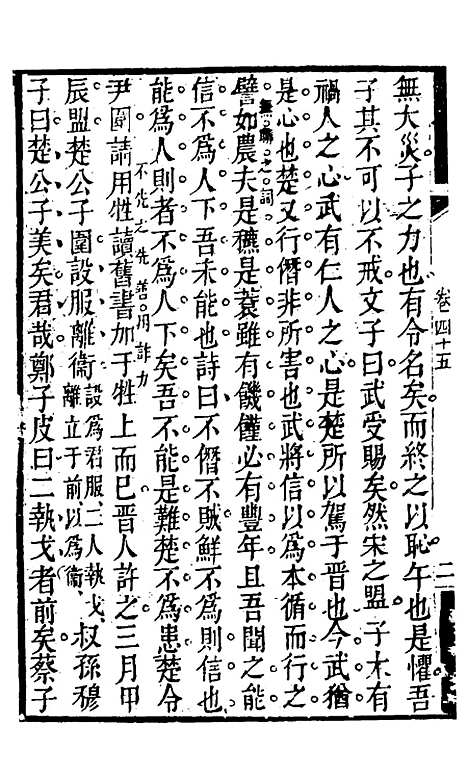 無大災子之力也有令名矣而終之以恥午也是懼吾
子其不可以不戒文子曰武受賜矣然宋之盟子木有
禍人之心武有仁人之心是楚所以駕于晉也今武猶
是心也楚又行僭非所害也武將信以為本循而行之
譬如農夫是穮是蓘雖有饑饉必有豐年且吾聞之能
信不為人下吾未能也詩曰不僭不賊鮮不為則信也
能為人則者不為人下矣吾不能是難楚不為患楚令
尹圍請用牲讀舊書加于牲上而已晉人許之三月甲
辰盟楚公子圍設服離衞設為君服二人執戈離立于前以為衞叔孫穆
子曰楚公子美矣君哉鄭子皮曰二執戈者前矣蔡子
之詞
不先之先善用詐力
卷四十五
二